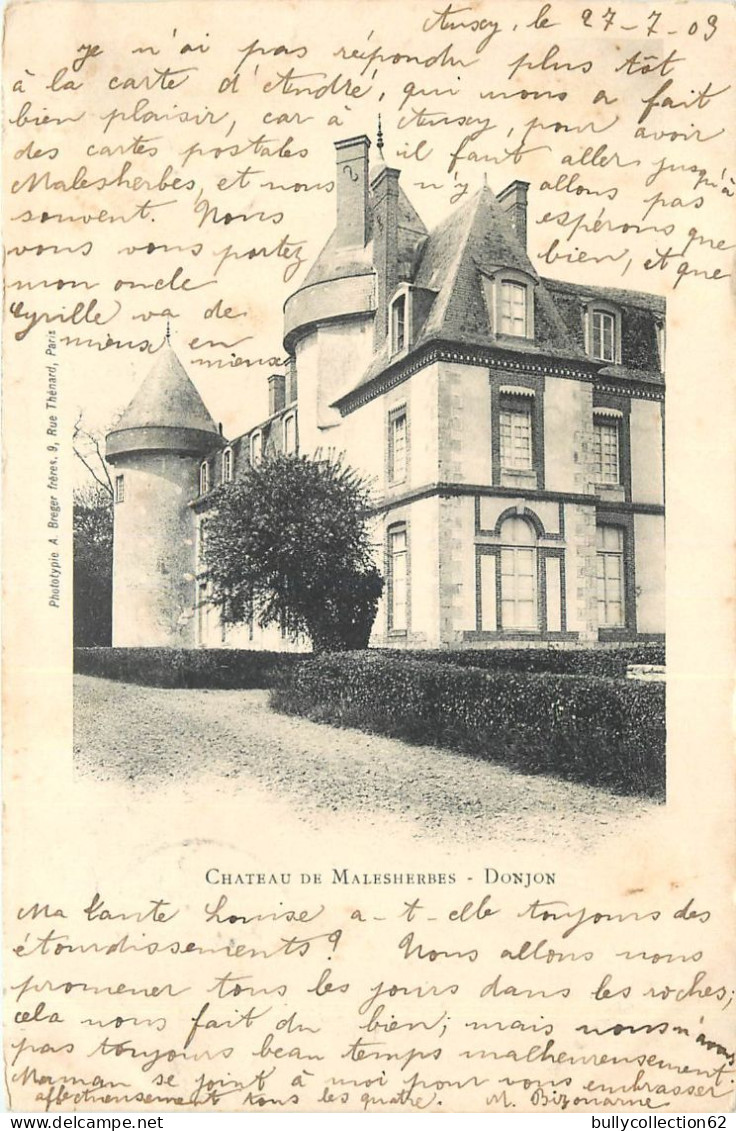 Auxy, le 27-7-03
je n'ai pas répondu plus tôt
à la carte d'André, qui nous a fait
bien plaisir, car à Auxy, pour avoir
des cartes postales il faut aller jusqu'à
Malesherbes, et nous n'y allons pas
souvent. Nous espérons que
vous vous portez bien, et que
mon oncle
Cyrille va de
mieux en
mieux
Phototypie A. Breger frères. 9, Rue Thénard, Paris
CHATEAU DE MALESHERBES - DONJON
Ma tante Louise a-t-elle toujours des
étourdissements? Nous allons nous
promener tous les jours dans les roches;
cela nous fait du bien; mais nous n'avons
pas toujours beau temps malheureusement.
Maman se joint à moi pour vous embrasser
affectueusement tous les quatre. M.
bullycollection62